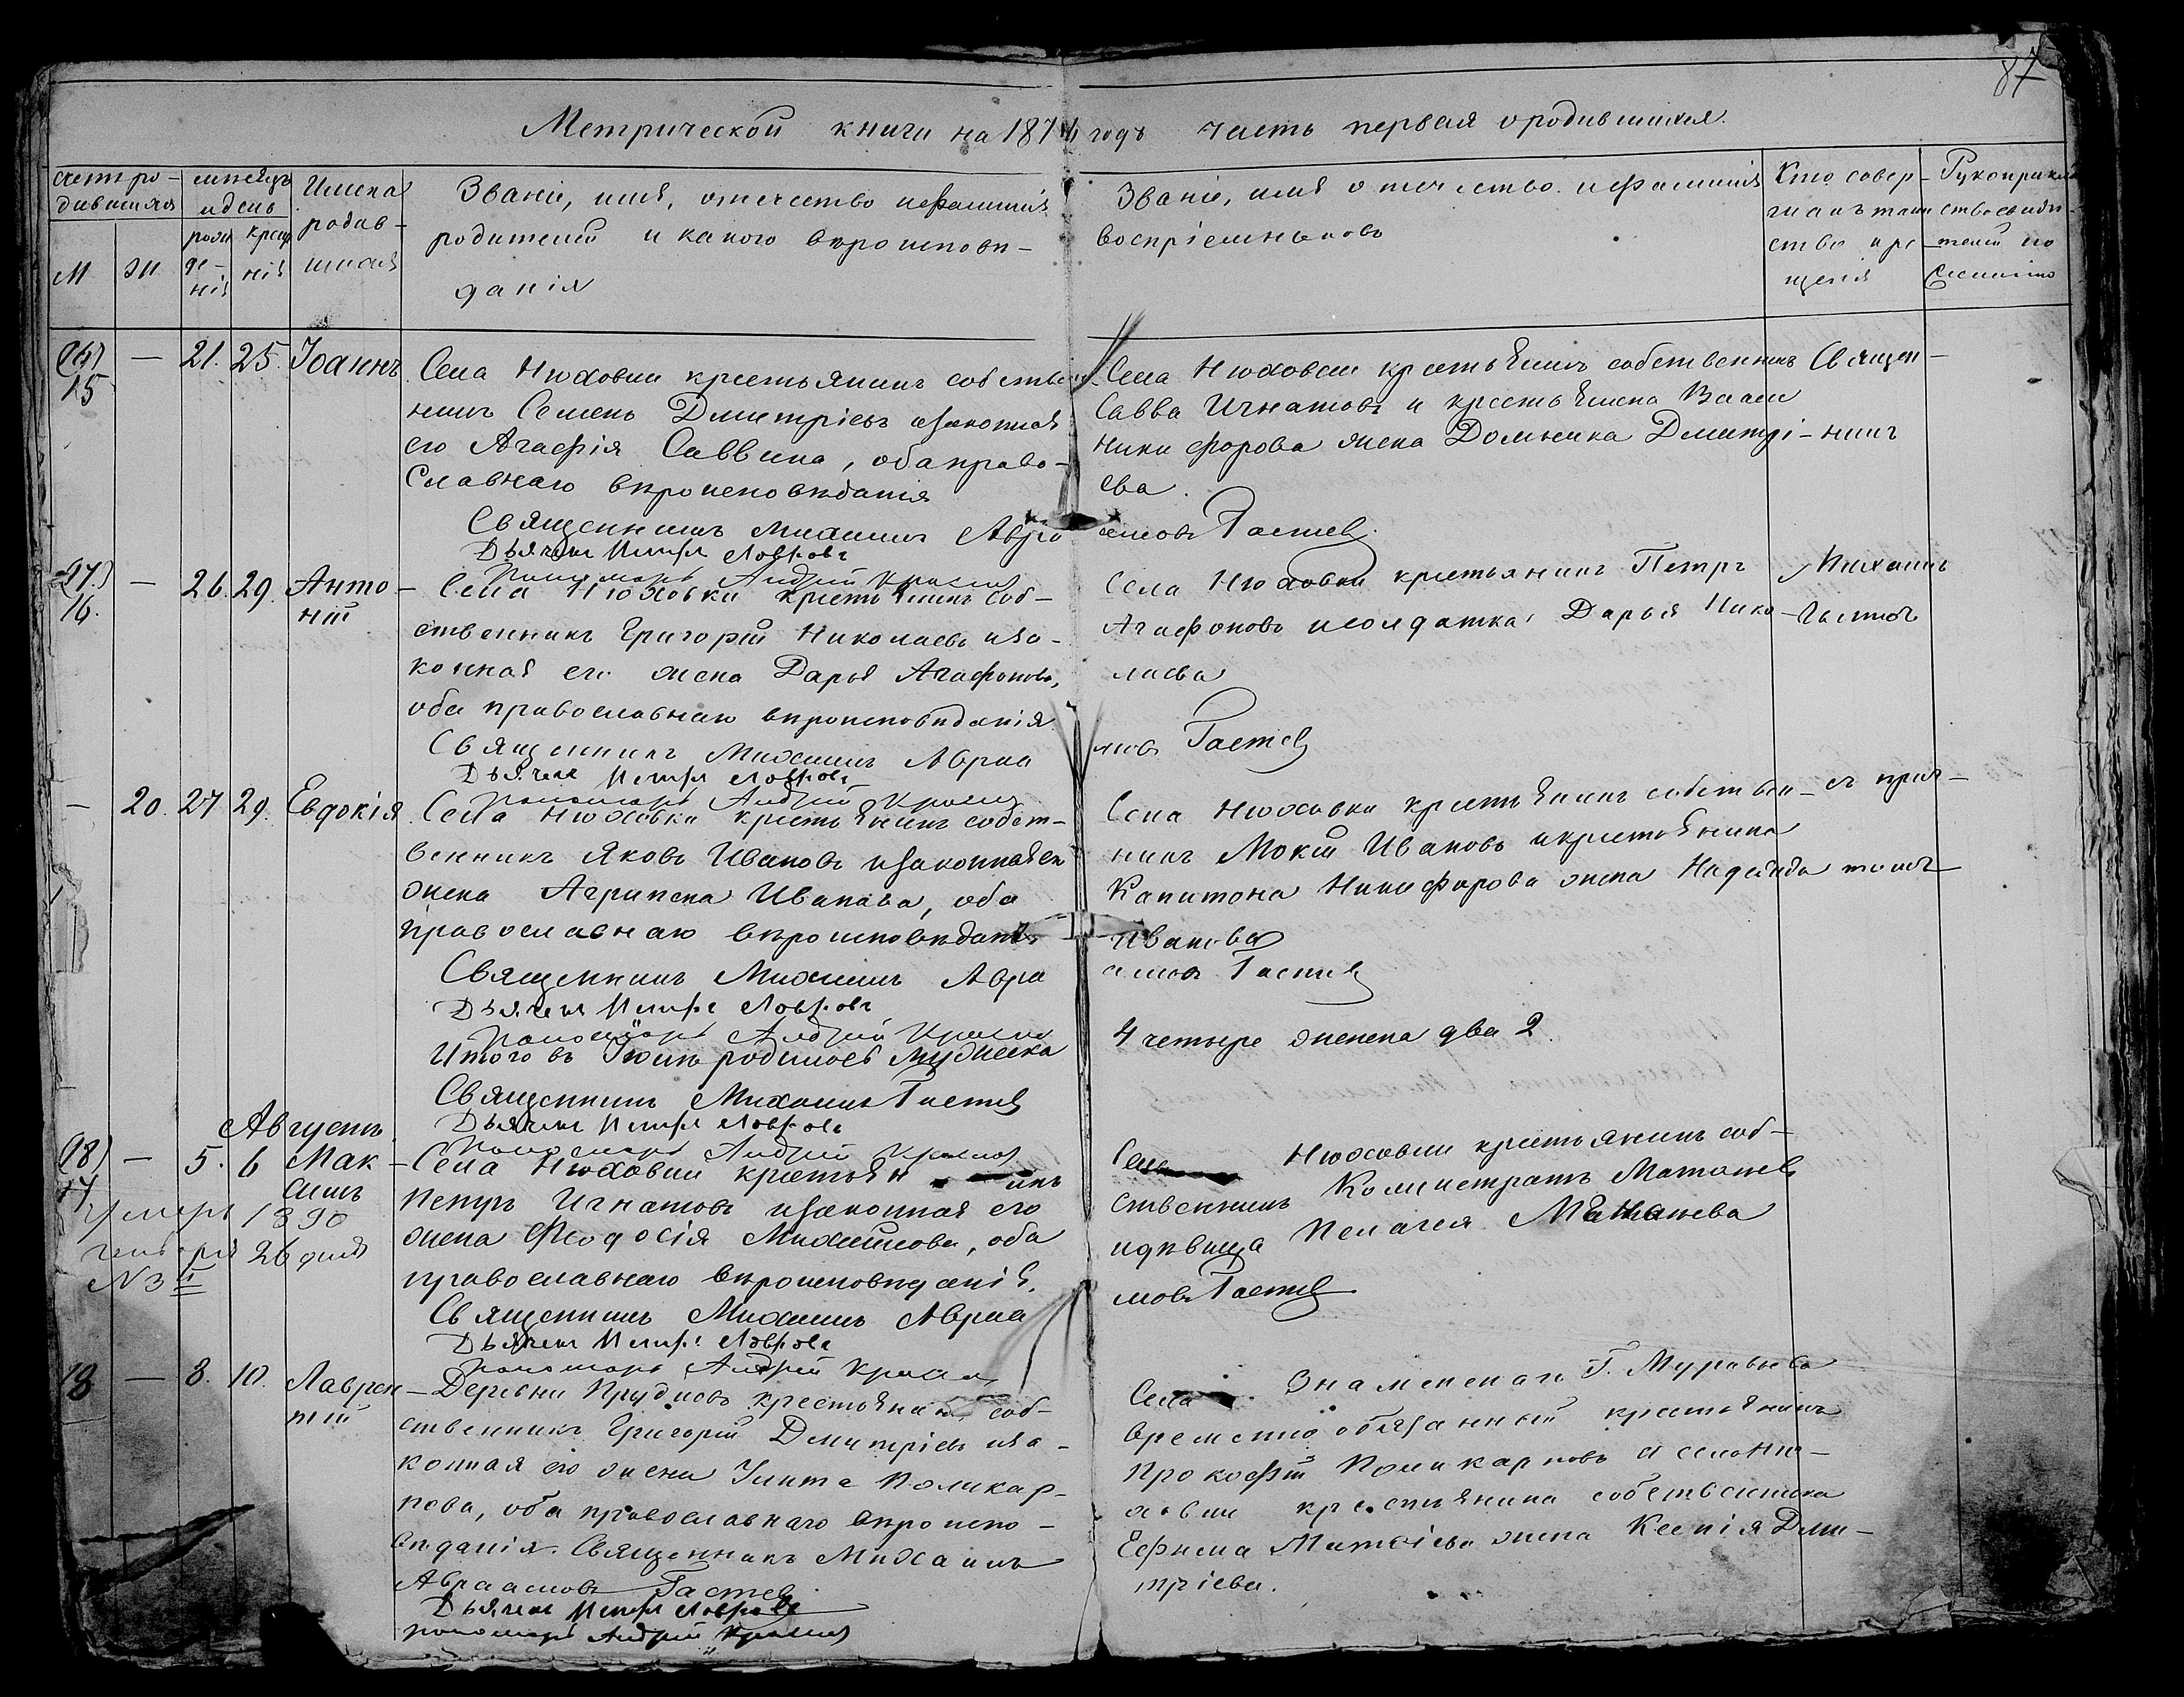 87
Метрической книги на 1871 годъ часть первая о родившихся.
Счетъ ро-
дившихся
М
Ж
мѣсяцъ
и день
рож
де-
нія
крещ
нія
Имена
родив-
шихся
Званіе, имя, отчество и фамилія
родителей и какого вѣроисповѣ-
данія
Званіе, имя отчество и фамилія
воспріемниковъ
Кто совер-
шалъ таин
ство кре
щенія
Рукоприклад
ство свидѣ-
телей по
желанію
15
—
21.
25.
Іоаннъ.
Села Нюховки крестьянинъ собствен-
никъ Семенъ Дмитріевъ и законная
его Агафія Саввина, оба право-
славнаго вѣроисповѣданія
Священникъ Михаилъ Авра
Дьячекъ Петръ Лавровъ
Пономарь Андрей
Села Нюховки крестьянинъ собственникъ
Савва Игнатовъ и крестьянина
Никифорова жена Домника Дмитрі-
ева.
амовъ Гастевъ.
Священ-
никъ
16.
—
26.
29.
Анто-
ній
Села Нюховки крестьянинъ соб-
ственникъ Григорій Николаевъ и за-
конная его жена Дарья Агафонова,
оба православнаго вѣроисповѣданія
Священникъ Михаилъ Авраа
Дьячекъ Петръ Лавровъ
Пономарь Андрей
Села Нюховки крестьянинъ Петръ
Агафоновъ и солдатка Дарья Нико-
лаева
мовъ Гастевъ
Михаилъ
Гастевъ
—
20.
27
29.
Евдокія.
Села Нюховки крестьянинъ собст-
венникъ Яковъ Ивановъ и законная его
жена Агрипена Иванова, оба
православнаго вѣроисповѣданія
Священникъ Михаилъ Авра
Дьячекъ Петръ Лавровъ
Пономарь Андрей
Села Нюховки крестьянинъ собствен-
никъ Мокій Ивановъ и крестьянина
Капитона Никифорова жена Надежда
Иванова
амовъ Гастевъ
съ прич-
томъ
Итого въ Іюлѣ родилось мужеска
4 четыре женска два 2.
Священникъ Михаилъ Гастевъ
Дьячекъ Петръ Лавровъ
Пономарь Андрей
Августъ
17
—
5.
6
Мак-
симъ
умеръ 1890
26 дня
N 3
Села Нюховки крестьянинъ
Петръ Игнатовъ и законная его
жена Феодосія Михайлова, оба
православнаго вѣроисповѣданія.
Священникъ Михаилъ Авраа
Дьячекъ Петръ Лавровъ
Пономарь Андрей
Села Нюховки крестьянинъ соб-
ственникъ Калистратъ
и дѣвица Пелагея
мовъ Гастевъ
18
—
8.
10.
Лаврен-
тій
Деревни Прудковъ крестьянинъ соб-
ственникъ Григорій Дмитріевъ и за-
конная его жена Улита Поликар-
пова, оба православнаго вѣроиспо-
вѣданія. Священникъ Михаилъ
Авраамовъ Гастевъ.
Дьячекъ Петръ Лавровъ
Пономарь Андрей
Села Знаменскаго Г. Муравьева
временно обязанный крестьянинъ
Прокофій Поликарповъ и села Ню-
ховки крестьянина собственника
Ефима жена Ксенія Дми-
тріева.